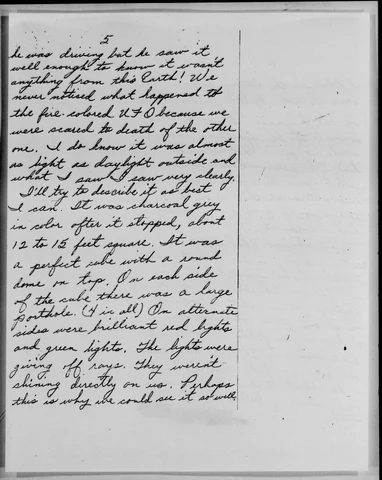 5
he was driving but he saw it
well enough to know it wasn't
anything from this Earth! We
never noticed what happened to
the fire-colored UFO because we
were scared to death of the other
one. I do know it was almost
as light as daylight outside and
what I saw I saw very clearly.
I'll try to describe it as best
I can. It was charcoal grey
in color after it stopped, about
12 to 15 feet square. It was
a perfect cube with a round
dome on top. On each side
of the cube there was a large
porthole. (4 in all) On alternate
sides were brilliant red lights
and green lights. The lights were
giving off rays. They weren't
shining directly on us. Perhaps
this is why we could see it so well